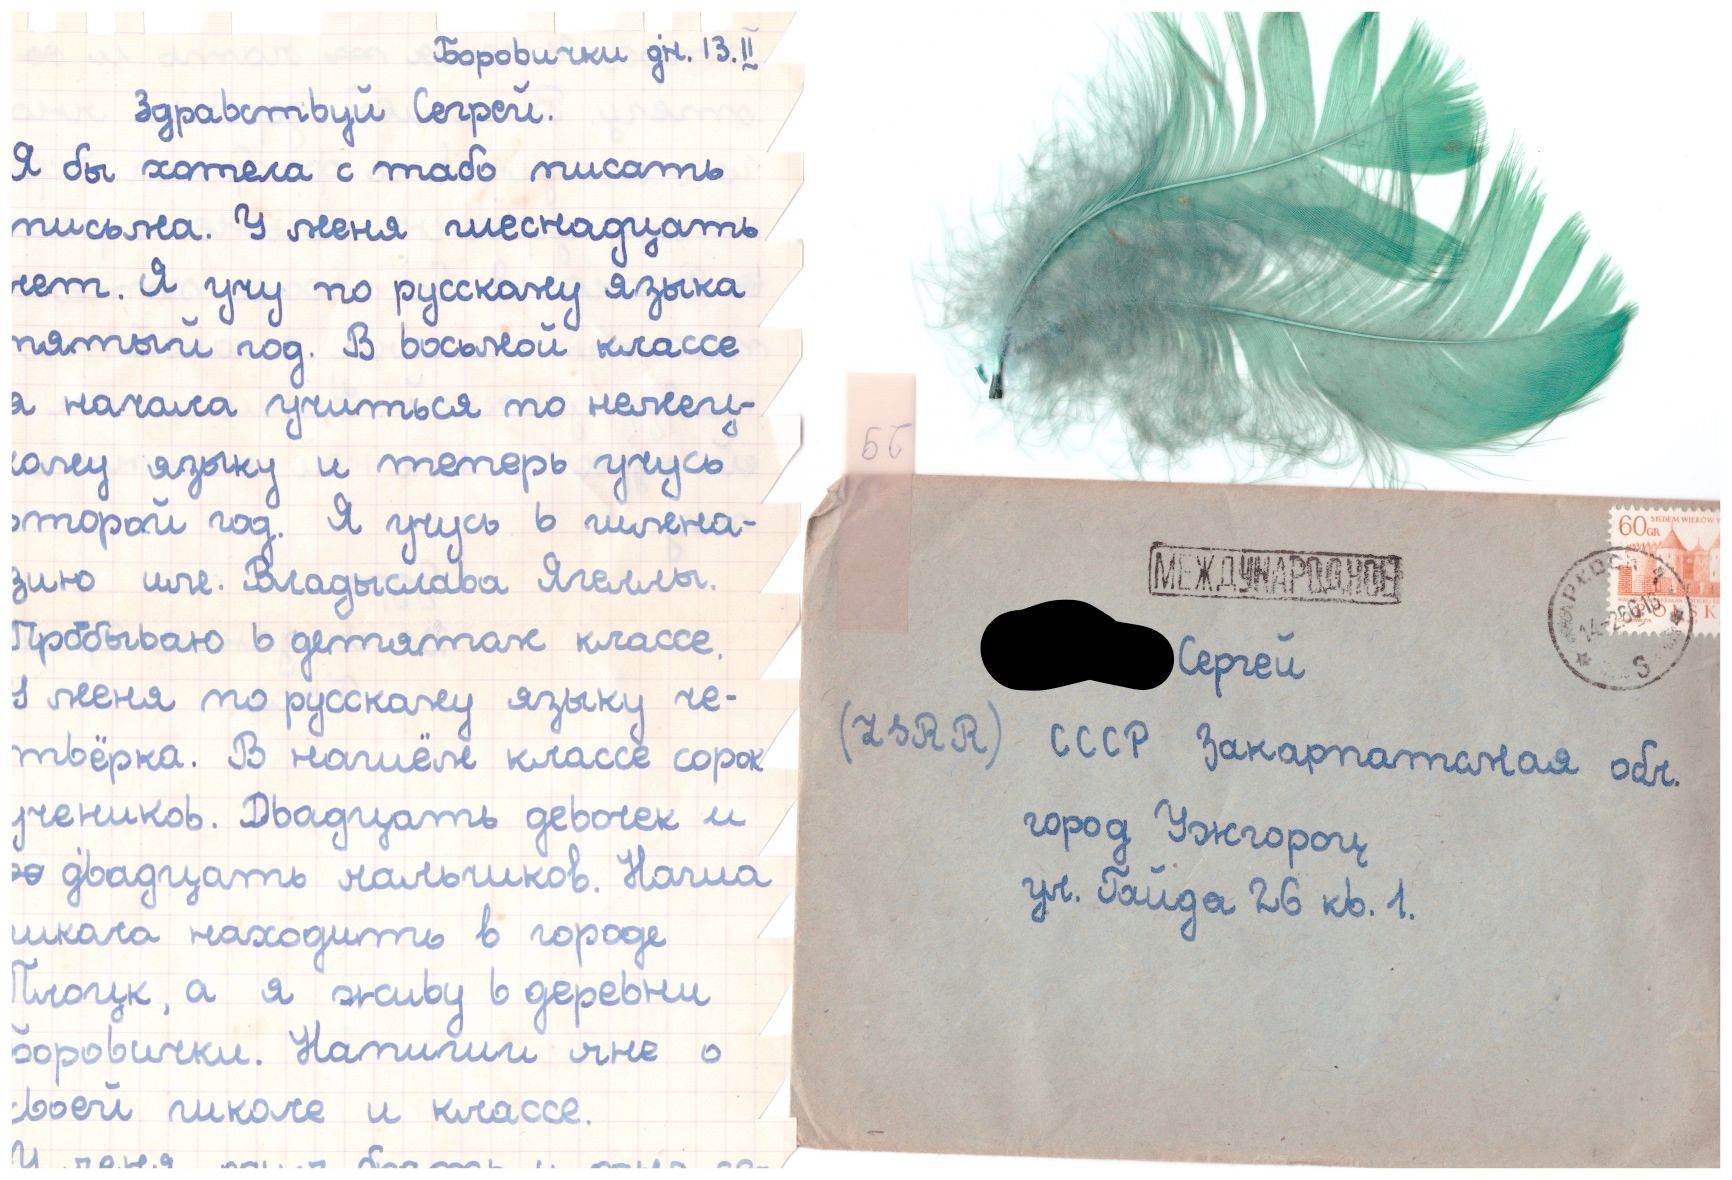 Боровички дн. 13.II
Здравствуй Сегрей.
Я бы хотела с табо писать
письма. У меня шеснадцать
лет. Я учу по русскаму языка
пятый год. В восьмой классе
я начала учиться по немец-
каму языку и теперь учусь
второй год. Я учусь в гимна-
зию им. Владыслава Ягеллы.
Пробываю в детятам классе.
У меня по русскаму языку че-
твёрка. В нашём классе сорок
учеников. Двадцать девочек и
двадцать мальчиков. Наша
школа находить в городе
Плоцк, а я живу в деревни
Боровички. Напиши мне о
своей школе и классе.
У меня
62
МЕЖДУНАРОДНОЕ
60GR SIEDEM WIEKÓW
POLSK
14-2 66
S
Сергей
(ZSRR) СССР Закарпатская обл.
город Ужгород
ул. Гайда 26 кв. 1.